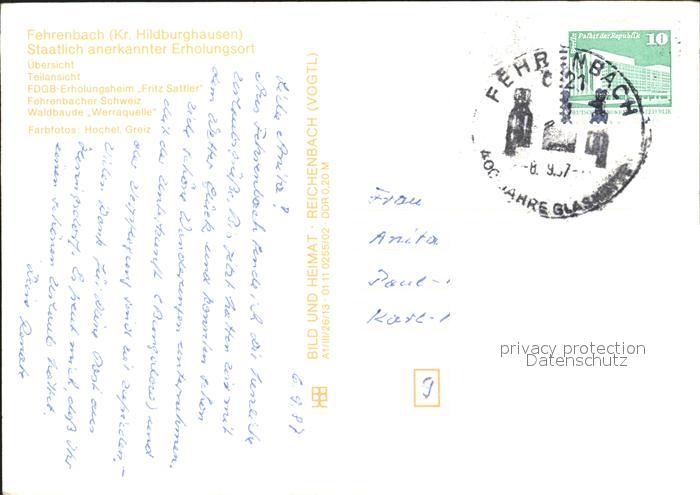 Fehrenbach (Kr. Hildburghausen)
Staatlich anerkannter Erholungsort
Übersicht
Teilansicht
FDGB-Erholungsheim „Fritz Sattler“
Fehrenbacher Schweiz
Waldbaude „Werraquelle“
Farbfotos: Hochel, Greiz
6 9 87
Liebe Anita!
Aus Fehrenbach sende ich die
Urlaubsgrüße. Bis jetzt hatten wir mit
dem Wetter Glück und konnten schon
sehr schöne Wanderungen unternehmen.
Mit der Unterkunft (Bungalow) und
der Verpflegung sind wir zufrieden. –
Vielen Dank für Deine Post aus
Es freut mich, daß Ihr
einen schönen Urlaub hattet.
Deine Renate
BILD UND HEIMAT · REICHENBACH (VOGTL)
A1/III/26/13 · 01 11 0255/02 · DDR 0,20 M
Palast der Republik
10
FEHRENBACH
-8. 9. 87--
400 JAHRE GLASHÜTTE
Frau
Anita
Paul-
Karl-
9
privacy protection
Datenschutz